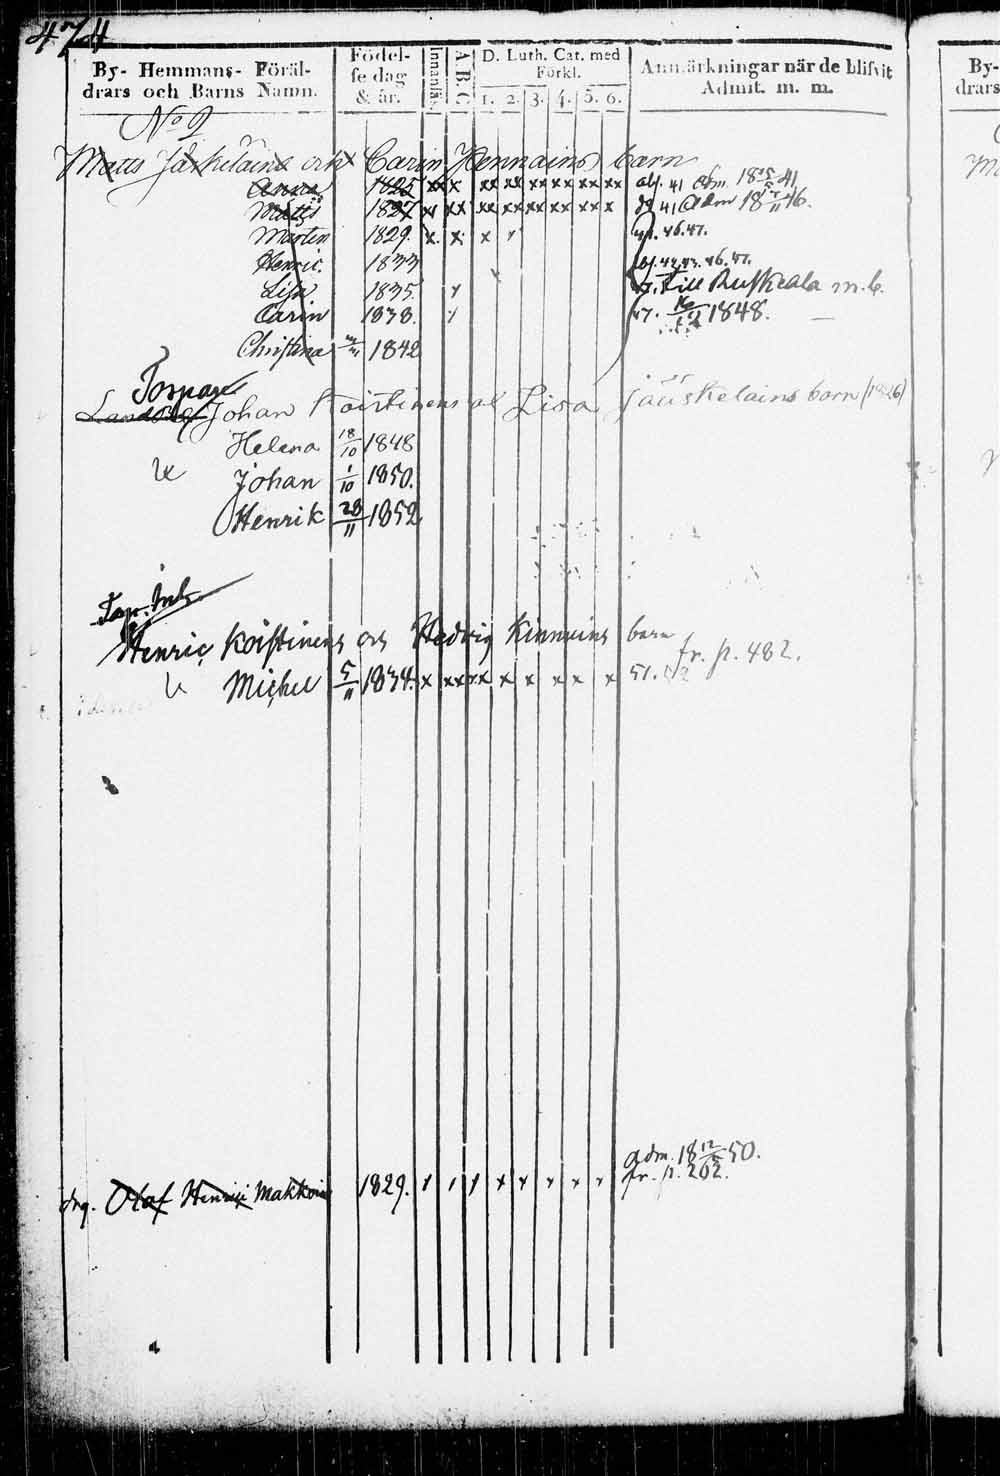 474
By- Hemmans- Föräl-
drars och Barns Namn.
Födel-
se dag
& år.
Innanläs.
A B C
D. Luth. Cat. med
Förkl.
1. 2. 3. 4. 5. 6.
Anmärkningar när de blifvit
Admit. m. m.
By-
drars
No 2
Matts Jäskeläine och Carin Hennains barn
Anna 1825 xx x xx xx xx xx xx xx 41 adm. 18 5/ 41
Matts 1827 x xx xx xx xx xx xx x 41 adm 18 /11 46.
Morten 1829. x. x x 46.47.
Henric. 1833 46.47.
Lisa 1835. 47. till Ruskeala m. b.
Carin 1838. 47. 16/ 1848.
Christina 1842
Torpare
Johan Koistinens o Lisa Jääskelains barn (1826)
Helena 18/10 1848
Johan 1/10 1850.
Henrik 28/11 1852
Torp. Inh.
Henric Koistinens och Hedvig Kinnuins barn
fr. p. 482.
Michel 5/11 1834. x xx xx x x x x x 51. 52
adm. 18 12/ 50.
drg. Olaf Henrici Makkoin 1829. x x x x x x x x fr. p. 262.